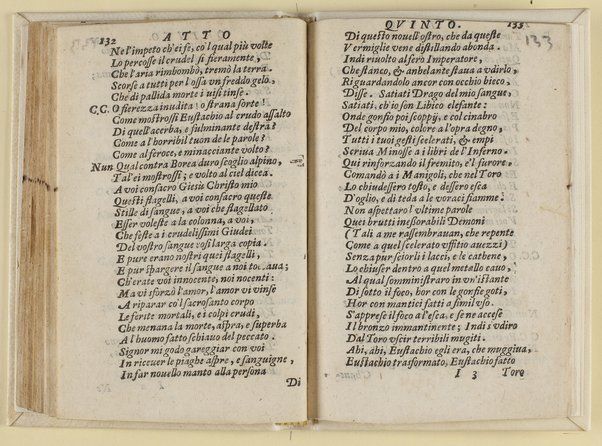 132 ATTO
Nel'impeto ch'ei fè, co'l qual più volte
Lo percosse il crudel sì fieramente,
Che l'aria rimbombò, tremò la terra.
Scorse a tutti per l'ossa vn freddo gelo,
Che di pallida morte i visi tinse.
C.C. O fierezza inudita! o strana sorte!
Come mostrossi Eustachio al crudo assalto
Di quell'acerba, e fulminante destra?
Come a l'horribil tuon de le parole?
Come al feroce, e minacciante volto?
Nun Qual contra Borea duro scoglio alpino,
Tal'ei mostrossi; e volto al ciel dicea.
A voi consacro Giesù Christo mio
Questi flagelli, a voi consacro queste
Stille di sangue, a voi che flagellato
Esser voleste a la colonna, a voi,
Che feste a i crudelissimi Giudei
Del vostro sangue così larga copia.
E pure erano nostri quei flagelli,
E pur spargere il sangue a noi toccaua;
Ch'erate voi innocente, noi nocenti:
Ma vi sforzò l'amor, l'amor vi vinse
A riparar co'l sacrosanto corpo
Le ferite mortali, e i colpi crudi,
Che menana la morte, aspra, e superba
A l'huomo fatto schiauo del peccato.
Signor mi godo gareggiar con voi
In riceuer le piaghe aspre, e sanguigne,
In far nouello manto alla persona
Di
QVINTO. 133
133
Di questo nouell'ostro, che da queste
Vermiglie vene distillando abonda.
Indi riuolto al fero Imperatore,
Che stanco, & anhelante staua a vdirlo,
Riguardandolo ancor con occhio bieco,
Disse. Satiati Drago del mio sangue,
Satiati, ch'io son Libico elefante:
Onde gonfio poi scoppij, e col cinabro
Del corpo mio, colore a l'opra degno,
Tutti i tuoi gesti scelerati, & empi
Scriua Minosse a i libri de l'Inferno.
Qui rinforzando il fremito, e'l furore,
Comandò a i Manigoli, che nel Toro
Lo chiudessero tosto, e dessero esca
D'oglio, e di teda a le voraci fiamme.
Non aspettaro l'vltime parole
Quei brutti inessorabili Demoni
(Tali a me rassembrauan, che repente
Come a quel scelerato vffitio auezzi)
Senza pur sciorli i lacci, e le cathene,
Lo chiuser dentro a quel metallo cauo,
Al qual somministraro in vn'istante
Di sotto il foco, hor con le gonfie goti,
Hor con mantici fatti a simil vso.
S'apprese il foco a l'esca, e se ne accese
Il bronzo immantinente; Indi s'vdiro
Dal Toro vscir terribili mugiti.
Ahi, ahi, Eustachio egli era, che muggiua,
Eustachio trasformato, Eustachio fatto
I 3 Toro